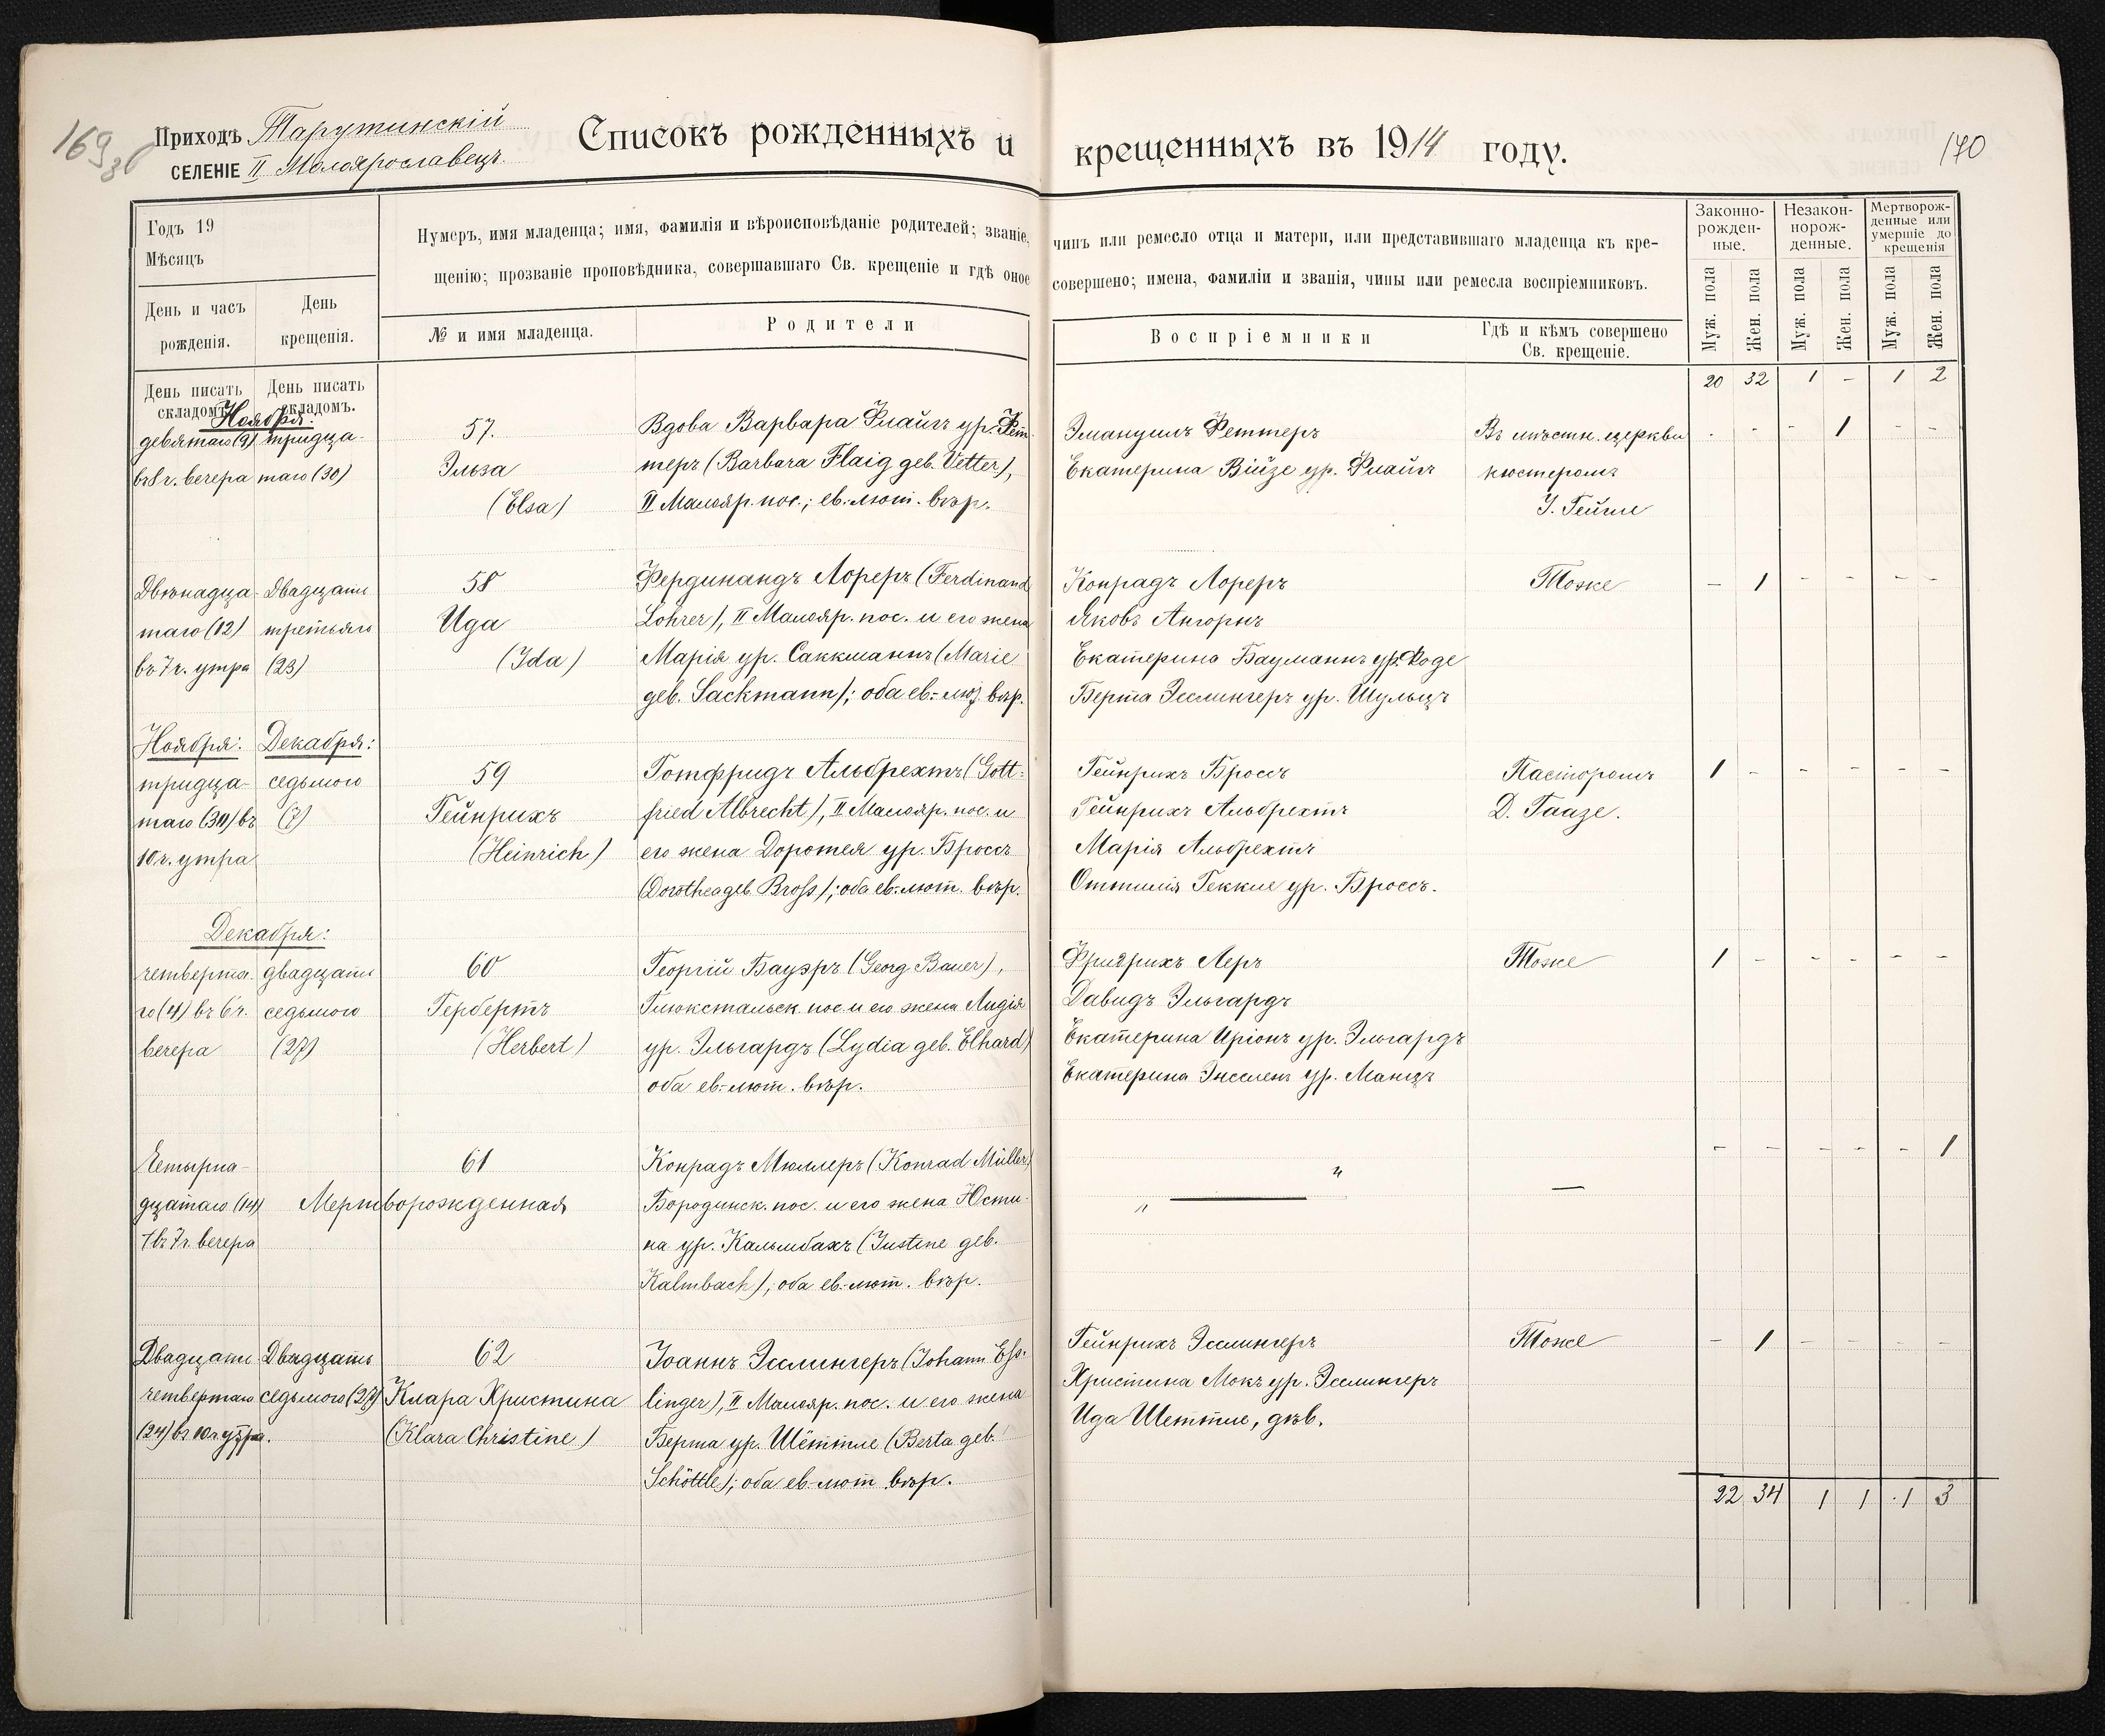 169
Приходъ Тарутинскій
СЕЛЕНІЕ II Малоярославецъ.
Списокъ рожденныхъ и крещенныхъ въ 1914 году.
170
Годъ 19
Мѣсяцъ
День и часъ рожденія.
День крещенія.
Нумеръ, имя младенца; имя, фамилія и вѣроисповѣданіе родителей; званіе, чинъ или ремесло отца и матери, или представившаго младенца къ кре-
щенію; прозваніе проповѣдника, совершавшаго Св. крещеніе и гдѣ оное совершено; имена, фамиліи и званія, чины или ремесла воспріемниковъ.
№ и имя младенца.
Родители
Воспріемники
Гдѣ и кѣмъ совершено
Св. крещеніе.
Законно-
рожден-
ные.
Незакон-
норож-
денные.
Мертворож-
денные или
умершіе до
крещенія
Муж. пола
Жен. пола
Муж. пола
Жен. пола
Муж. пола
Жен. пола
День писать
складомъ.
День писать
складомъ.
20 32 1 – 1 2
Ноября:
девятаго (9)
въ 8 ч. вечера
тридца-
таго (30)
57.
Эльза
(Elsa)
Вдова Варвара Флайгъ ур. Фет-
теръ (Barbara Flaig geb. Vetter),
II Малояр. пос.; ев.-лют. вѣр.
Эмануилъ Феттеръ
Екатерина Війзе ур. Флайгъ
Въ мѣстн. церкви
кюстеромъ
- - - 1 - -
Двѣнадца-
таго (12)
въ 7 ч. утра
Двадцать
третьяго
(23)
58
Ида
(Ida)
Фердинандъ Лореръ (Ferdinand
Lohrer), II Малояр. пос. и его жена
Марія ур. Саккманнъ (Marie
geb. Sackmann); оба ев.-лют. вѣр.
Конрадъ Лореръ
Яковъ Ангорнъ
Екатерина Бауманнъ ур. Роде
Берта Эсслингеръ ур. Шульцъ
Тоже
– 1 - - - -
Ноября:
тридца-
таго (30) въ
10 ч. утра
Декабря:
седьмого
(7)
59
Гейнрихъ
(Heinrich)
Готфридъ Альбрехтъ (Gott-
fried Albrecht), II Малояр. пос. и
его жена Доротея ур. Броссъ
(Dorothea geb. Broß); оба ев.-лют. вѣр.
Гейнрихъ Броссъ
Гейнрихъ Альбрехтъ
Марія Альбрехтъ
Оттилія Геккле ур. Броссъ.
Пасторомъ
Д. Гаазе.
1 - - - - -
Декабря:
четверта-
го (4) въ 6 ч.
вечера
двадцать
седьмого
(27)
60
Гербертъ
(Herbert)
Георгій Бауэръ (Georg Bauer),
Глюкстальск. пос. и его жена Лидія
ур. Эльгардъ (Lydia geb. Elhard)
оба ев.-лют. вѣр.
Фридрихъ Леръ
Давидъ Эльгардъ
Екатерина Иріонъ ур. Эльгардъ
Екатерина Энсленъ ур. Манцъ
Тоже
1 - - - - -
Четырна-
дцатаго (14)
въ 7 ч. вечера
61
Мертворожденная
Конрадъ Мюллеръ (Konrad Müller)
Бородинск. пос. и его жена Юсти-
на ур. Кальмбахъ (Justine geb.
Kalmbach); оба ев.-лют. вѣр.
" — "
—
- - - - - 1
Двадцать
четвертаго
(24) въ 10 ч. утра.
Двадцать
седьмого (27)
62
Клара Христина
(Klara Christine)
Іоаннъ Эсслингеръ (Johann Eß-
linger), II Малояр. пос. и его жена
Берта ур. Шёттле (Berta geb.
Schöttle); оба ев.-лют. вѣр.
Гейнрихъ Эсслингеръ
Христина Мокъ ур. Эсслингеръ
Ида Шеттле, дѣв.
Тоже
- 1 - - - -
22 34 1 1 1 3